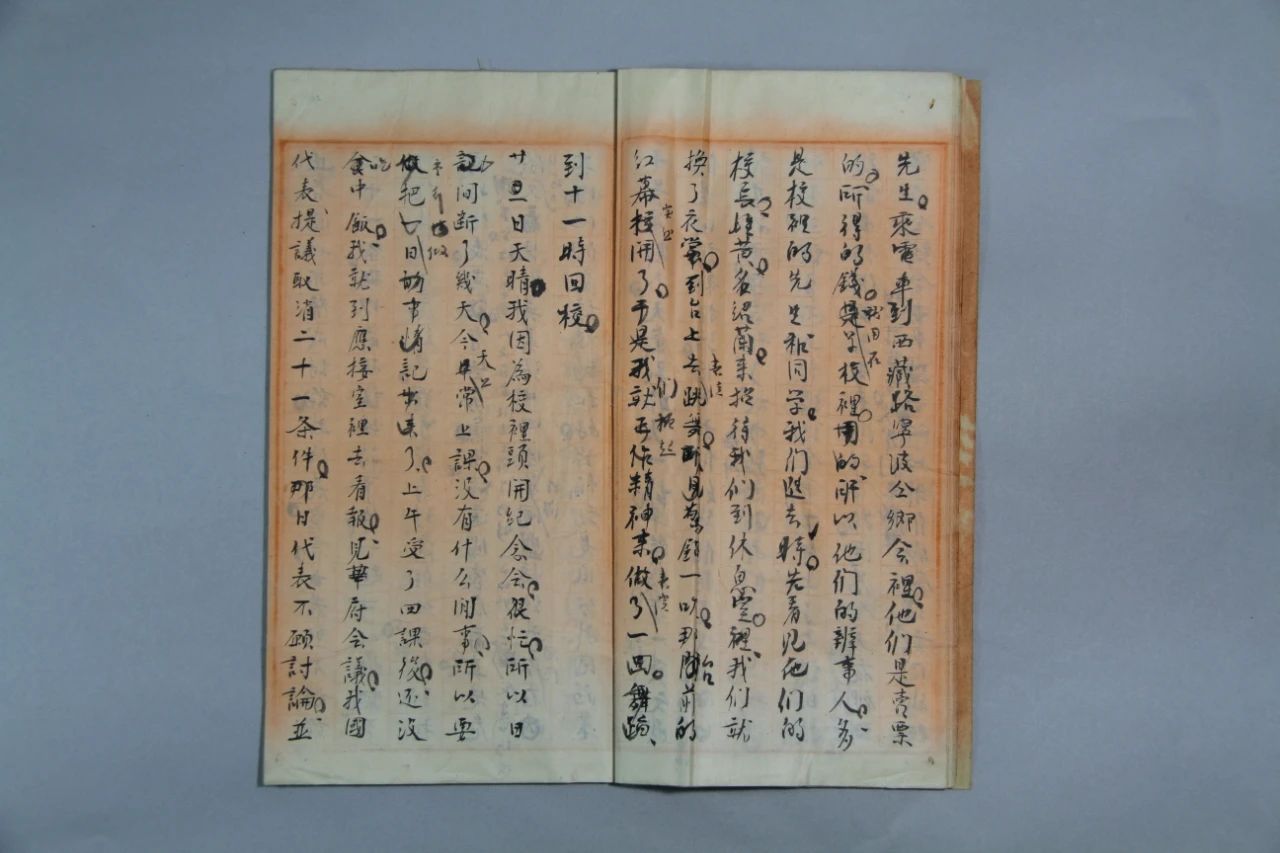 先生乘電車到西藏路寧波公鄉会裡他们是賣票
的所得的錢是学校裡用的所以他们的辦事人多
是校裡的先生和同学我们進去時先看見他们的
校長姓黄名紹蘭来招待我们到休息室裡我们就
換了衣裳到台上去跳舞見鈴一吹那前的
红幕開了于是我就再作精神来做了一回舞蹈
到十一時回校
廿三日天晴我因為校裡頭開紀念会很忙所以日
記间断了幾天今日早常上課没有什么闲事所以要
把日的事情記出来了上午受了四課後还没
吃中飯我就到應接室裡去看報見華府会議我國
代表提議取消二十一条件那日代表不願討論並